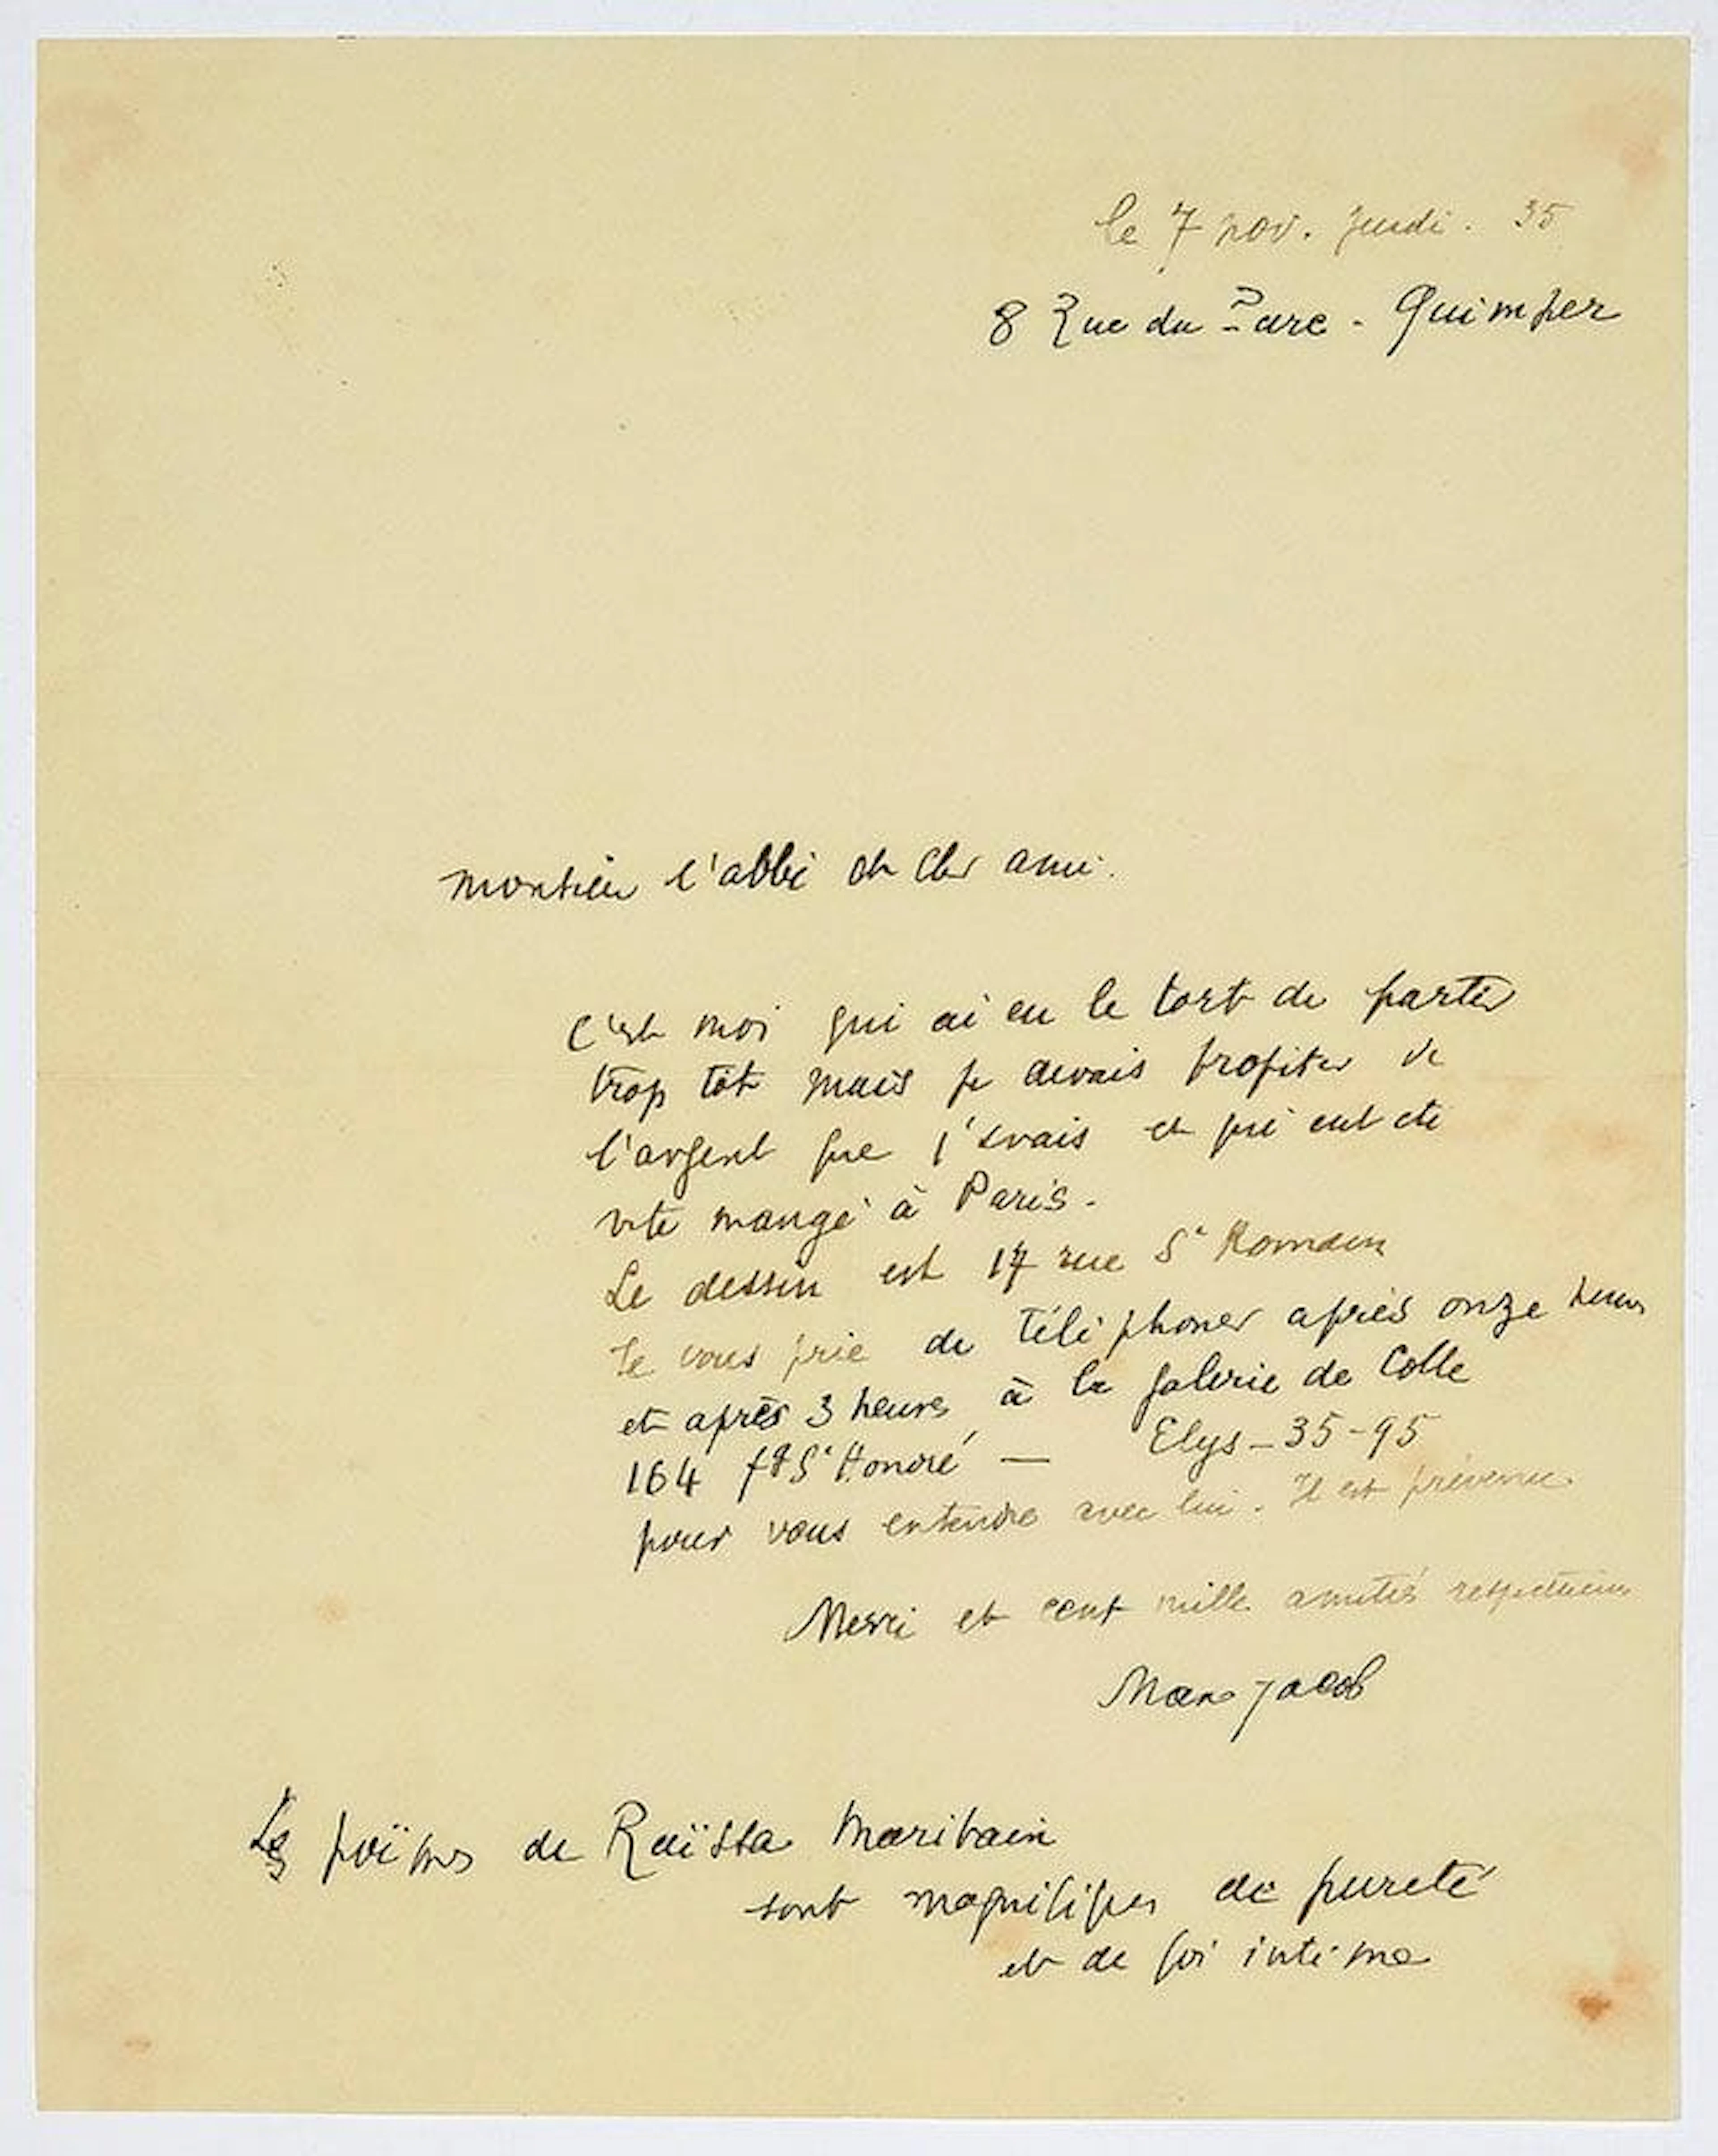 le 7 nov. jeudi. 35
8 Rue du Parc - Quimper
Monsieur l'abbé et cher ami.
C'est moi qui ai eu le tort de partir
trop tôt mais je devais profiter de
l'argent que j'avais et qui eut été
vite mangé à Paris.
Le dessin est 17 rue St Romain
Je vous prie de téléphoner après onze heures
et après 3 heures à la galerie de Colle
164 fg St Honoré — Elys - 35-95
pour vous entendre avec lui. Il est prévenu.
Merci et cent mille amitiés respectueuses
Max Jacob
Les poëmes de Raïssa Maritain
sont magnifiques de pureté
et de foi intime